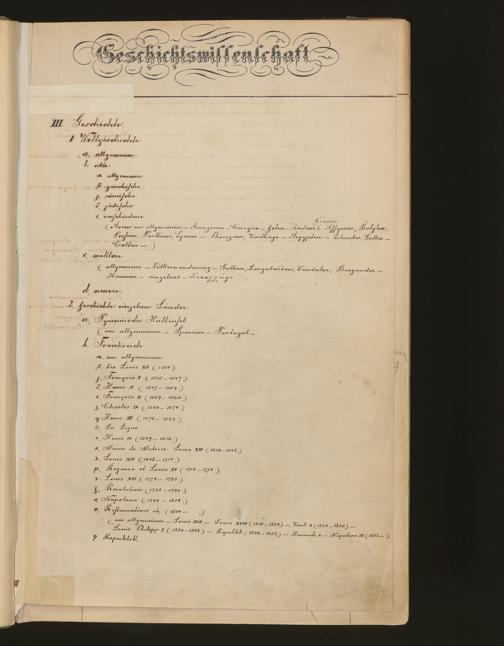 Geschichtswissenschaft
III Geschichte
1. Weltgeschichte
a. allgemeine
b. alte
α. allgemeine
β. griechische
γ. römische
δ. jüdische
ε. verschiedene
Assyrien, Babylon,
Persien, Parther, Syrien – Phönizier, Karthago – Aegypten – Etrusker, Gallia –
Celten – )
c. mittlere
( allgemeine – Völkerwanderung – Gothen, Langobarden, Vandalen, Burgunder –
Hunnen – einzelnes – Kreuzzüge
d. neuere.
2. Geschichte einzelner Länder.
a. Pyrenäische Halbinsel
( im allgemeinen – Spanien – Portugal –
b. Frankreich
α. im allgemeinen
β. bis Louis XII ( 1514 )
γ. François I ( 1515–1547 )
δ. Henri II ( 1547–1559 )
ε. François II ( 1559–1560 )
ζ. Charles IX ( 1560–1574 )
η. Henri III ( 1574–1589 )
θ. La Ligue
ι. Henri IV ( 1589–1610 )
κ. Marie de Medicis. Louis XIII ( 1610–1643 )
λ. Louis XIV ( 1643–1715 )
μ. Regence et Louis XV ( 1715–1774 )
ν. Louis XVI ( 1774–1793 )
ξ. Revolution ( 1793–1799 )
ο. Napoleon ( 1799–1814 )
π. Restauration etc. ( 1814– )
( im allgemeinen – Louis XVIII – Karl X (1824–1830) –
Louis Philipp I ( 1830–1848 ) – Republik ( 1848–1852 ) – Napoleon III ( 1852– )
ρ. Republik